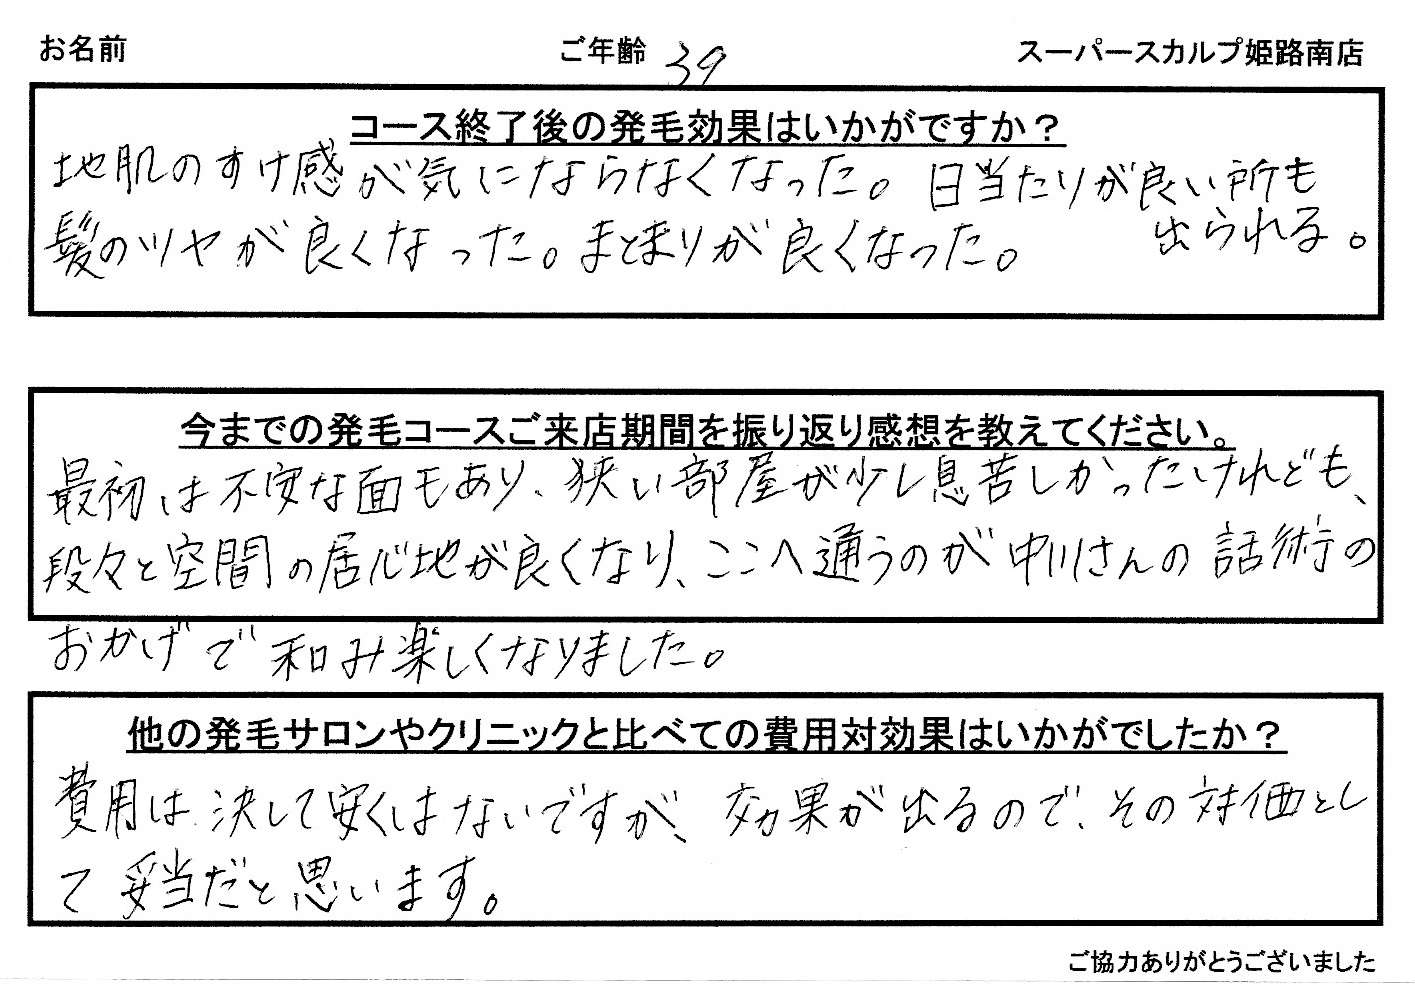 お名前 ご年齢 39 スーパースカルプ姫路南店
コース終了後の発毛効果はいかがですか？
地肌のすけ感が気にならなくなった。日当たりが良い所も
出られる。
髪のツヤが良くなった。まとまりが良くなった。
今までの発毛コースご来店期間を振り返り感想を教えてください。
最初は不安な面もあり、狭い部屋が少し息苦しかったけれども、
段々と空間の居心地が良くなり、ここへ通うのが中川さんの話術の
おかげで和み楽しくなりました。
他の発毛サロンやクリニックと比べての費用対効果はいかがでしたか？
費用は決して安くはないですが、効果が出るので、その対価とし
て妥当だと思います。
ご協力ありがとうございました